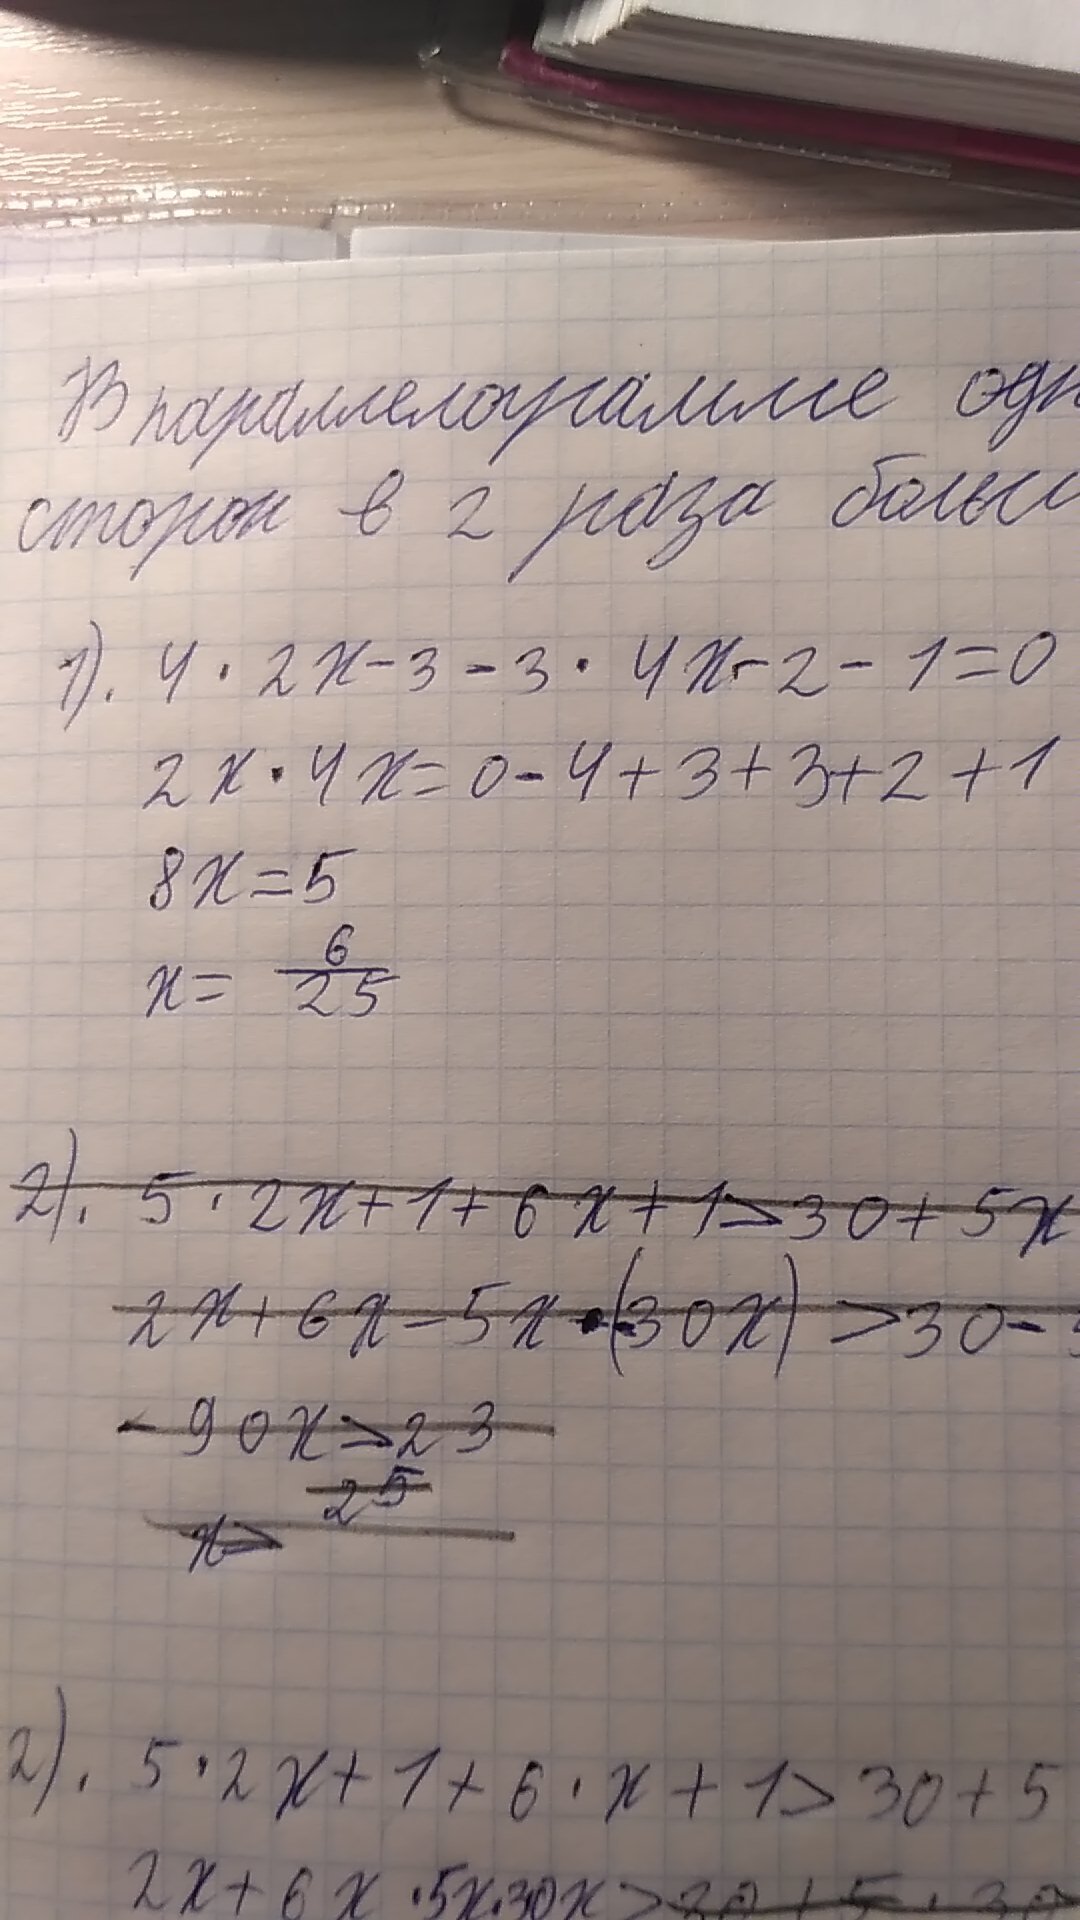 В параллелограмме одн
сторон в 2 раза больш
1). 4 · 2x - 3 - 3 · 4x - 2 - 1 = 0
2x · 4x = 0 - 4 + 3 + 3 + 2 + 1
8x = 5
x = 6/25
2). 5 · 2x + 1 + 6x + 1 > 30 + 5x
2x + 6x - 5x · (30x) > 30 -
- 90x > 23
25
x >
2). 5 · 2x + 1 + 6 · x + 1 > 30 + 5
2x + 6x · 5x · 30x > 30 + 5 · 30